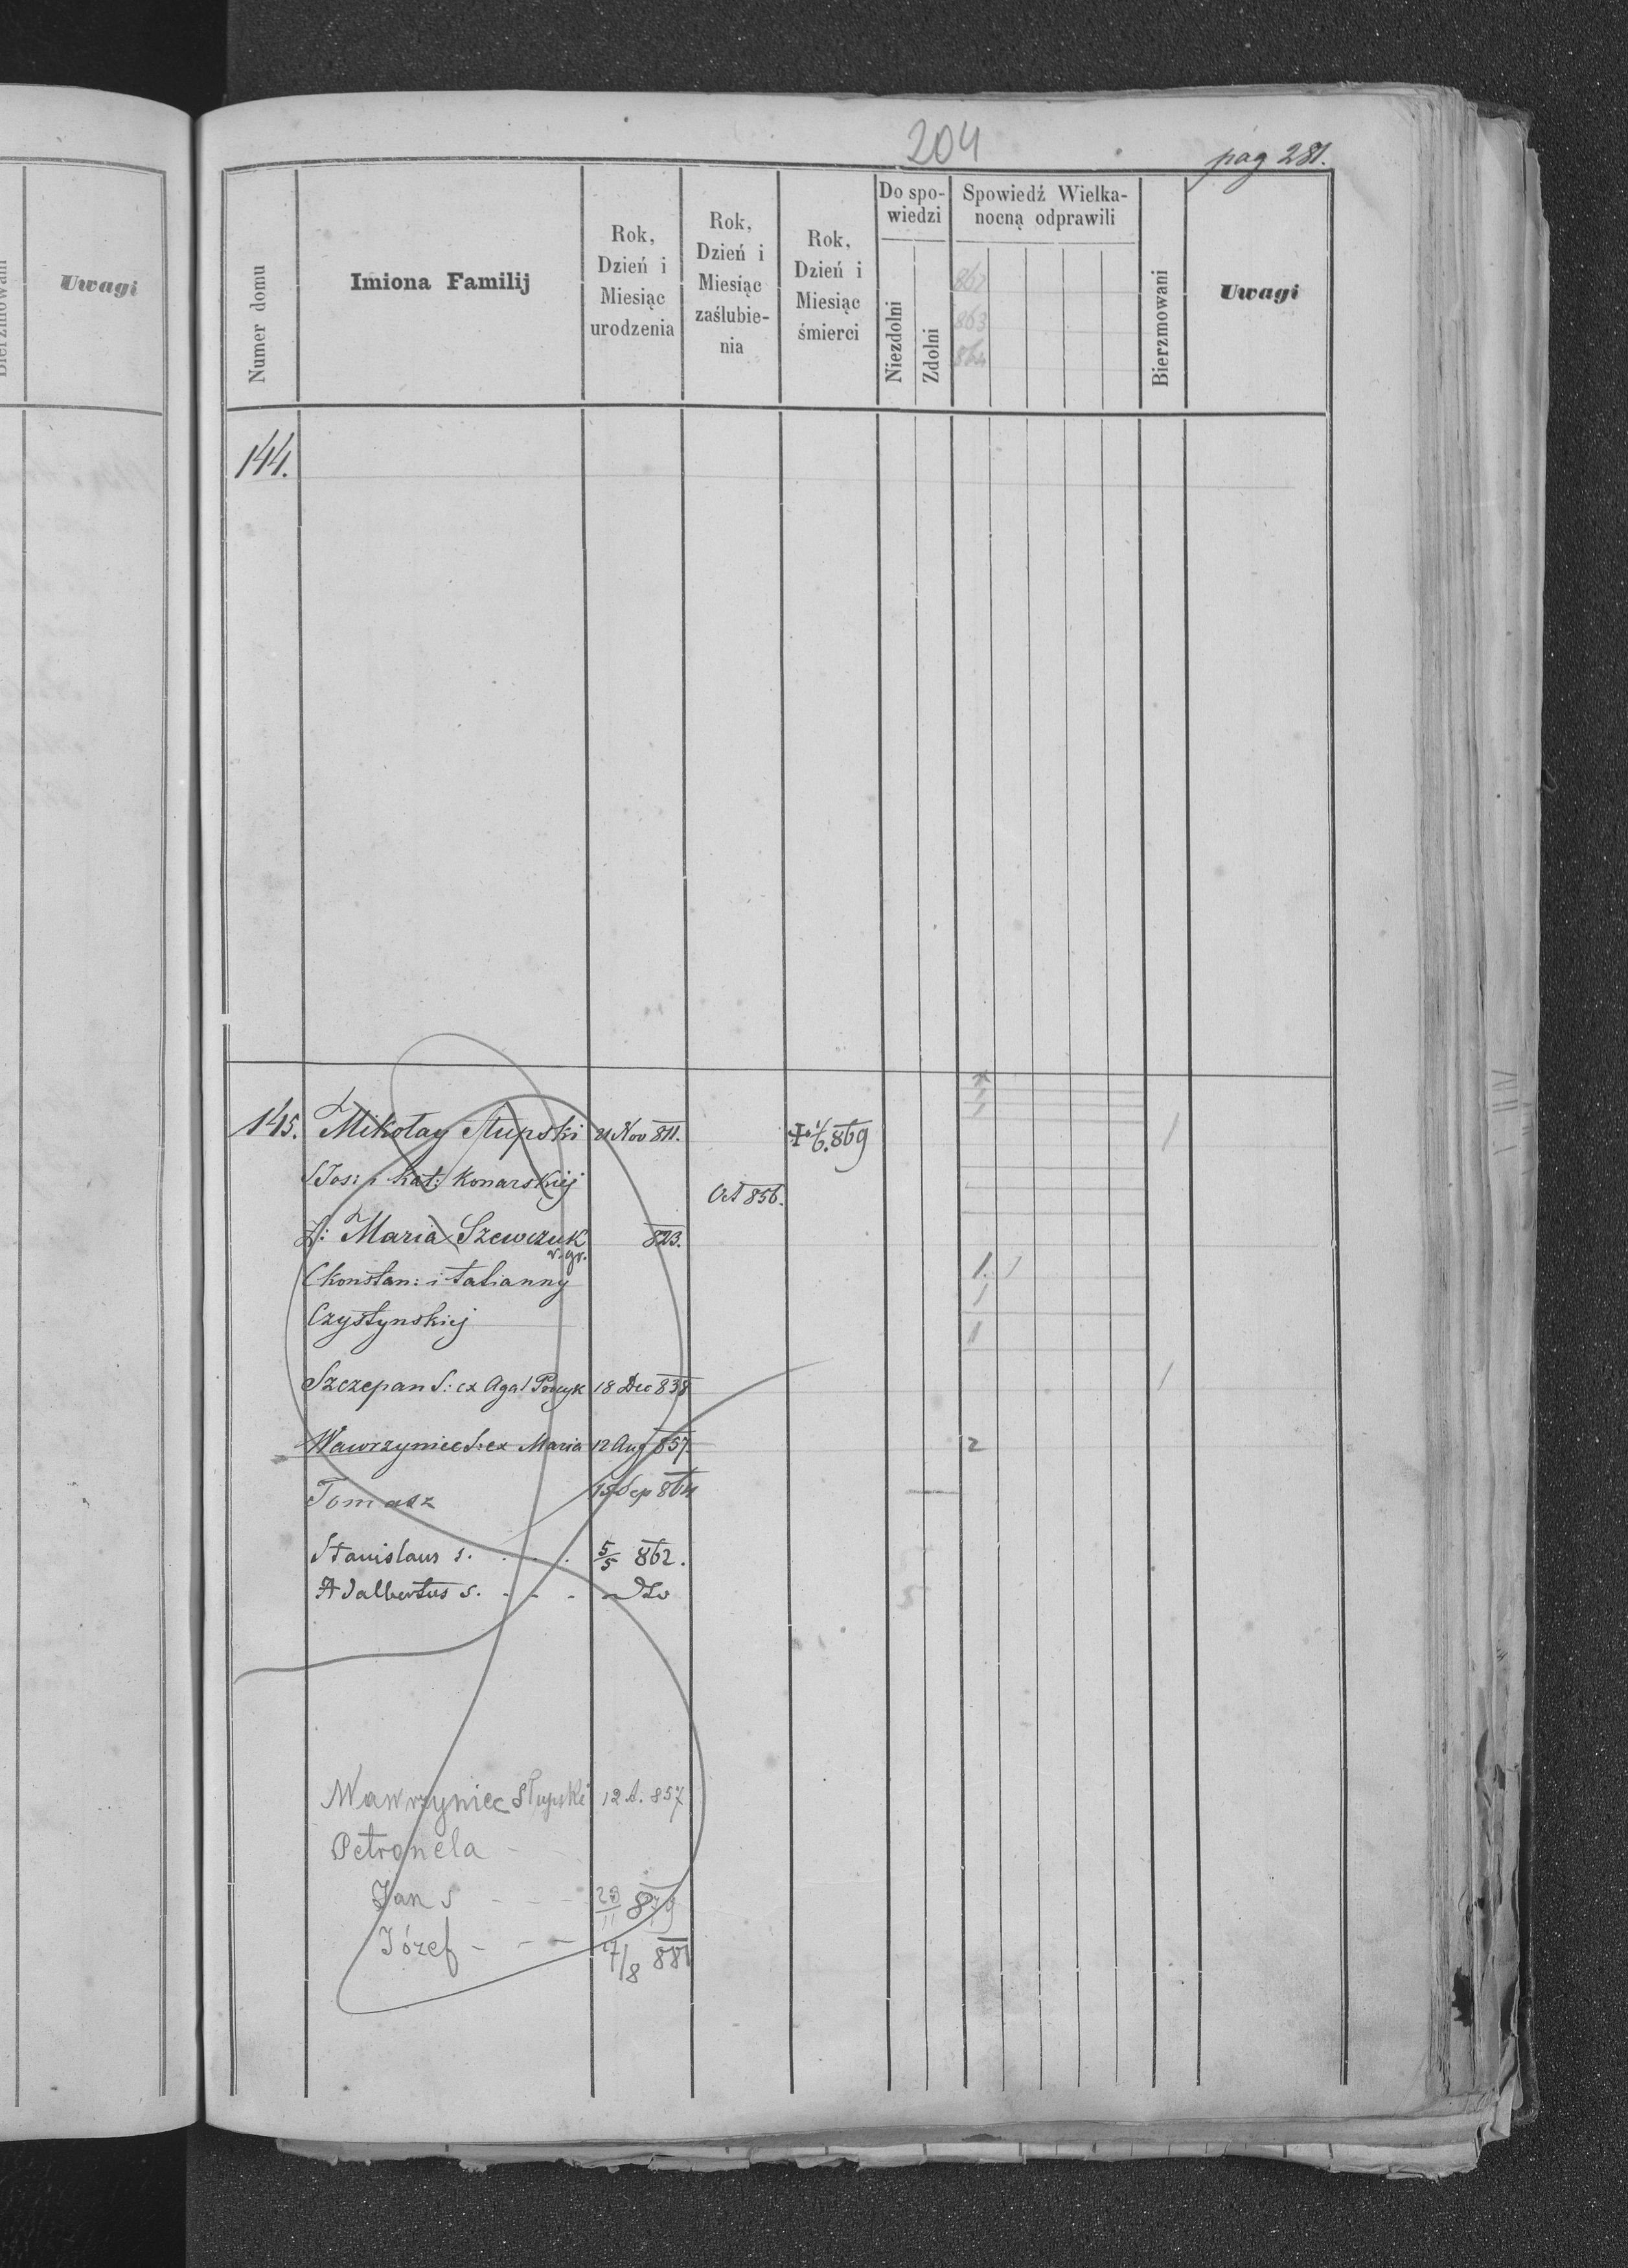 204
pag 281.
Numer domu
Imiona Familij
Rok, Dzień i Miesiąc urodzenia
Rok, Dzień i Miesiąc zaślubienia
Rok, Dzień i Miesiąc śmierci
Do spowiedzi
Niezdolni
Zdolni
Spowiedź Wielkanocną odprawili
862
863
864
Bierzmowani
Uwagi
Uwagi
144.
145. Mikołay Słupski 21 Nov 811. 1/6. 869
S Jos: i Kat: Konarskiej
Oct 856.
Ż: Maria Szewczuk 823.
r. gr.
C Konstan: i Tatianny
Czystynskiej
Szczepan S: ex Aga 18 Dec 838
Wawrzyniec S: ex Maria 12 Aug 857.
Tomasz 15 Sep 864
Stanislaus s. 5/5 862.
Adalbertus s. dto
Wawrzyniec Słupski 12 A. 857
Petronela
Jan S 23/11 879
Józef 17/8 881